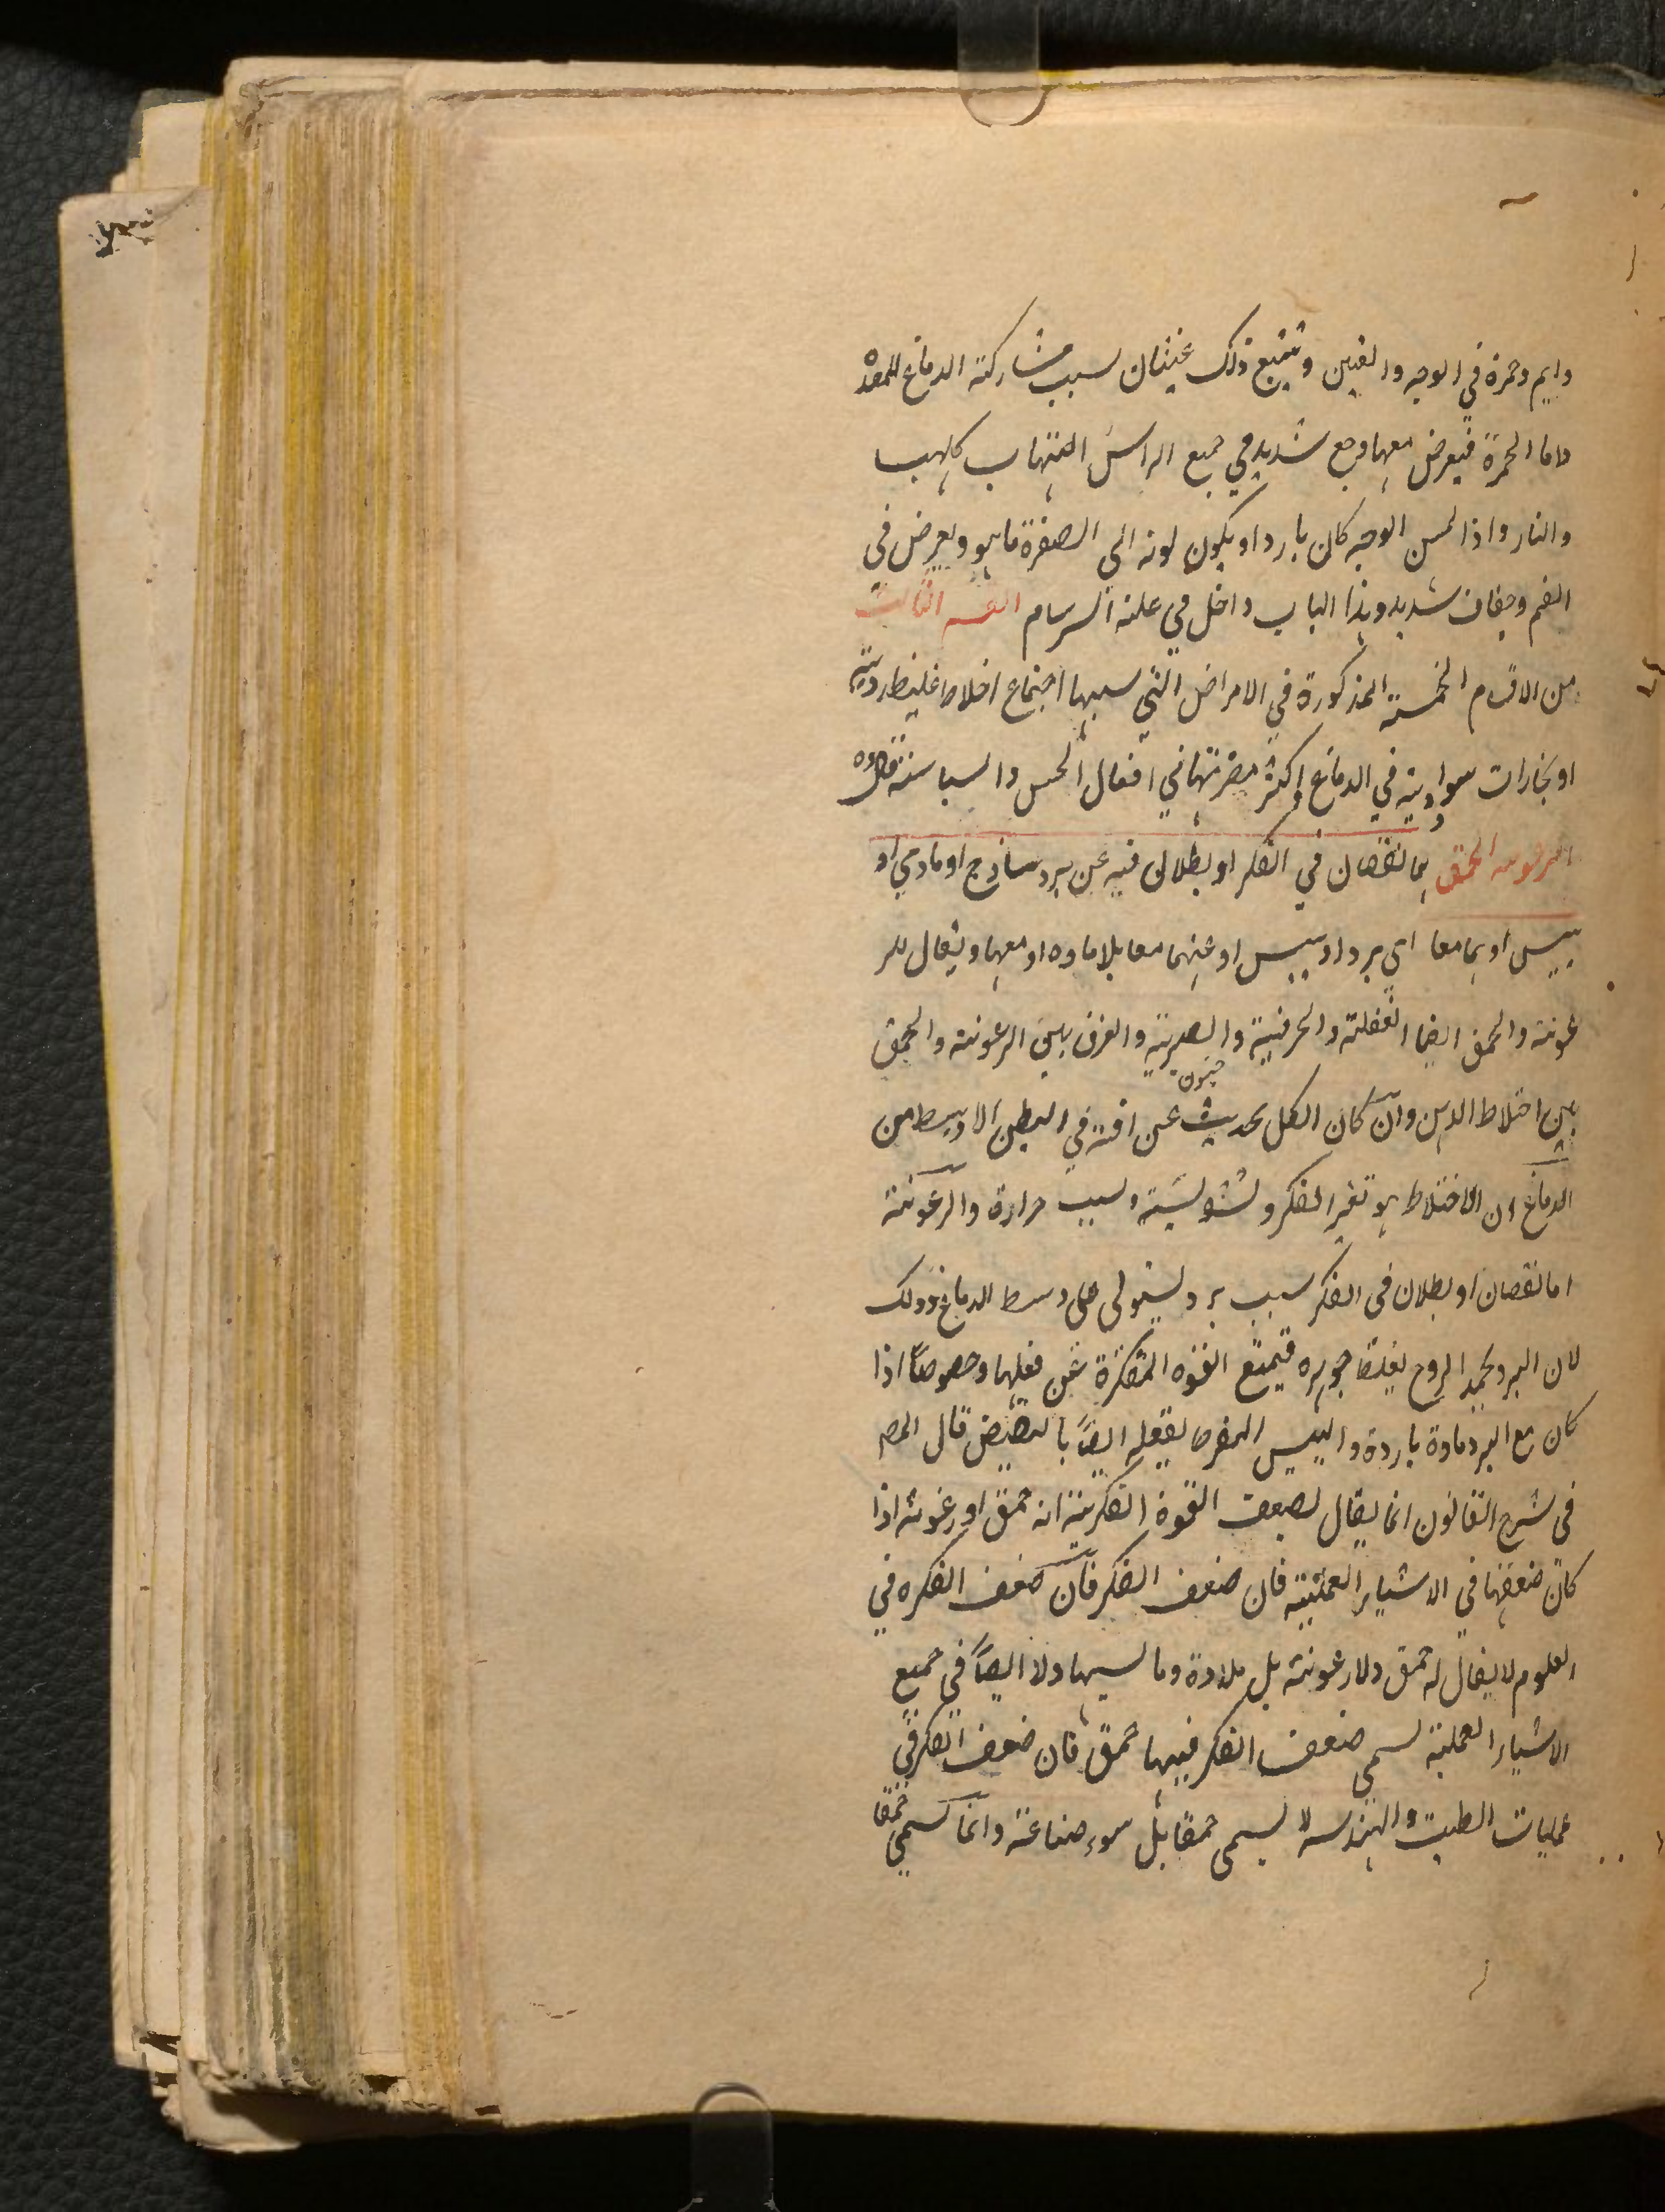 دايم وحمرة في الوجه والعين ويتبع ذلك غثيان لسبب مشاركة الدماغ للمعدة
واما الحمرة فيعرض معها وجع شديد في جميع الراس التهاب كلهب
والنار واذا لمس الوجه كان باردا ويكون لونه الي الصفرة ما هو ويعرض في
الفم وجفاف شديد وهذا الباب داخل في علته السرسام القسم الثالث
من الاقسام الخمسة المذكورة في الامراض التي سببها اجتماع اخلاط غليظ ردية
او بخارات سوادية في الدماغ واكثر مضرتها في افعال الحس والسياسة
الرعونه الحمق هما نقصان في الفكر او بطلان فيه عن برد ساذج او مادي او
يبيس او هما معا اي برد او يبس او عنهما معا بلا ماده او معها ويقال للر
عونة والحمق ايضا الغفلة والخرفية والصبرية والفرق بين الرعونة والحمق
بين اختلاط الذهن وان كان الكل يحدث عن افة في البطن الاوسط من
جنون
الدماغ ان الاختلاط هو تغير الفكر وتشويشه لسبب حرارة والرعونة
اما نقصان او بطلان في الفكر لسبب برد يستولي علي وسط الدماغ وذلك
لان البرد يجمد الروح يغلظ جوهره فيمنع القوه المفكرة عن فعلها وخصوصاً اذا
كان مع البرد مادة باردة واليبس المفرط يفعله ايضاً بالتقبيض قال المص
في شرح القانون انما يقال لضعف القوة الفكرية انه حمق او رعونة اذا
كان ضعفها في الاشياء العملية فان ضعف الفكر فان ضعف الفكره في
العلوم لا يقال له حمق ولا رعونة بل بلادة وما يشبهها ولا ايضاً في جميع
الاشياء العملية يسمي ضعف الفكر فيها حمق فان ضعف الفكر في
عمليات الطب والهندسة لا يسمى حمقا بل سوء صناعة وانما يسمي حمقا